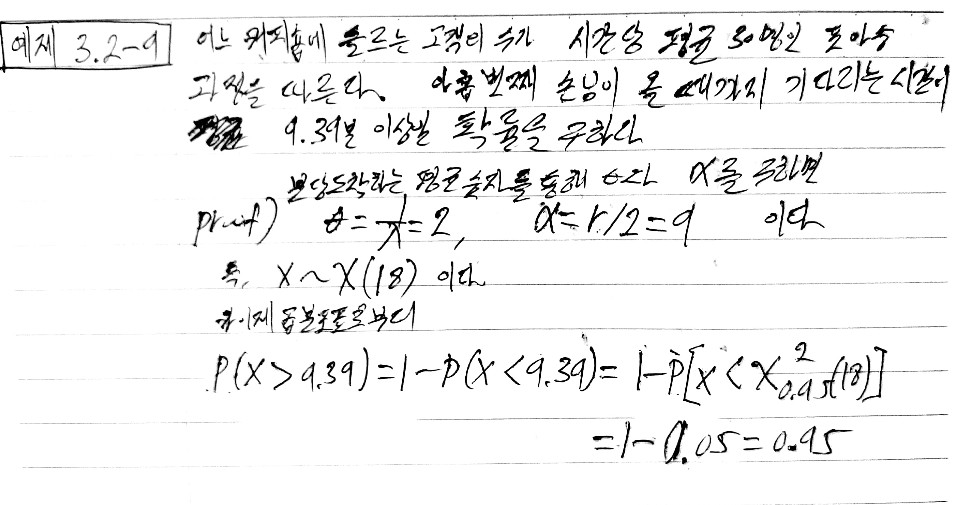 예제 3.2-9 어느 커피숍에 들르는 고객의 수가 시간당 평균 30명인 포아송
과정을 따른다. 아홉번째 손님이 올 때까지 기다리는 시간이
9.39분 이상일 확률을 구하라
분당 도착하는 평균 숫자를 통해 θ와 α를 구하면
proof) θ = 1/λ = 2, α = r/2 = 9 이다
즉, X ~ X(18) 이다
이제 분포표로부터
P(X > 9.39) = 1 - P(X < 9.39) = 1 - P[X < X²₀.₉₅(18)]
= 1 - 0.05 = 0.95